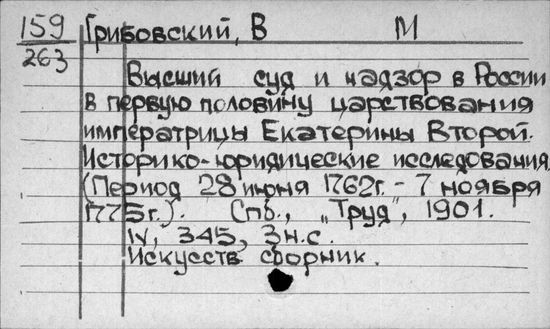 159 Грибовский, В М
263
Высший суд и надзор в России
в первую половину царствования
императрицы Екатерины Второй.
Историко-юридические исследования
(Период 28 июня 1762г. - 7 ноября
1775г.). Спб., „Труд", 1901.
IV, 345, 3н.с.
Искусств сборник.